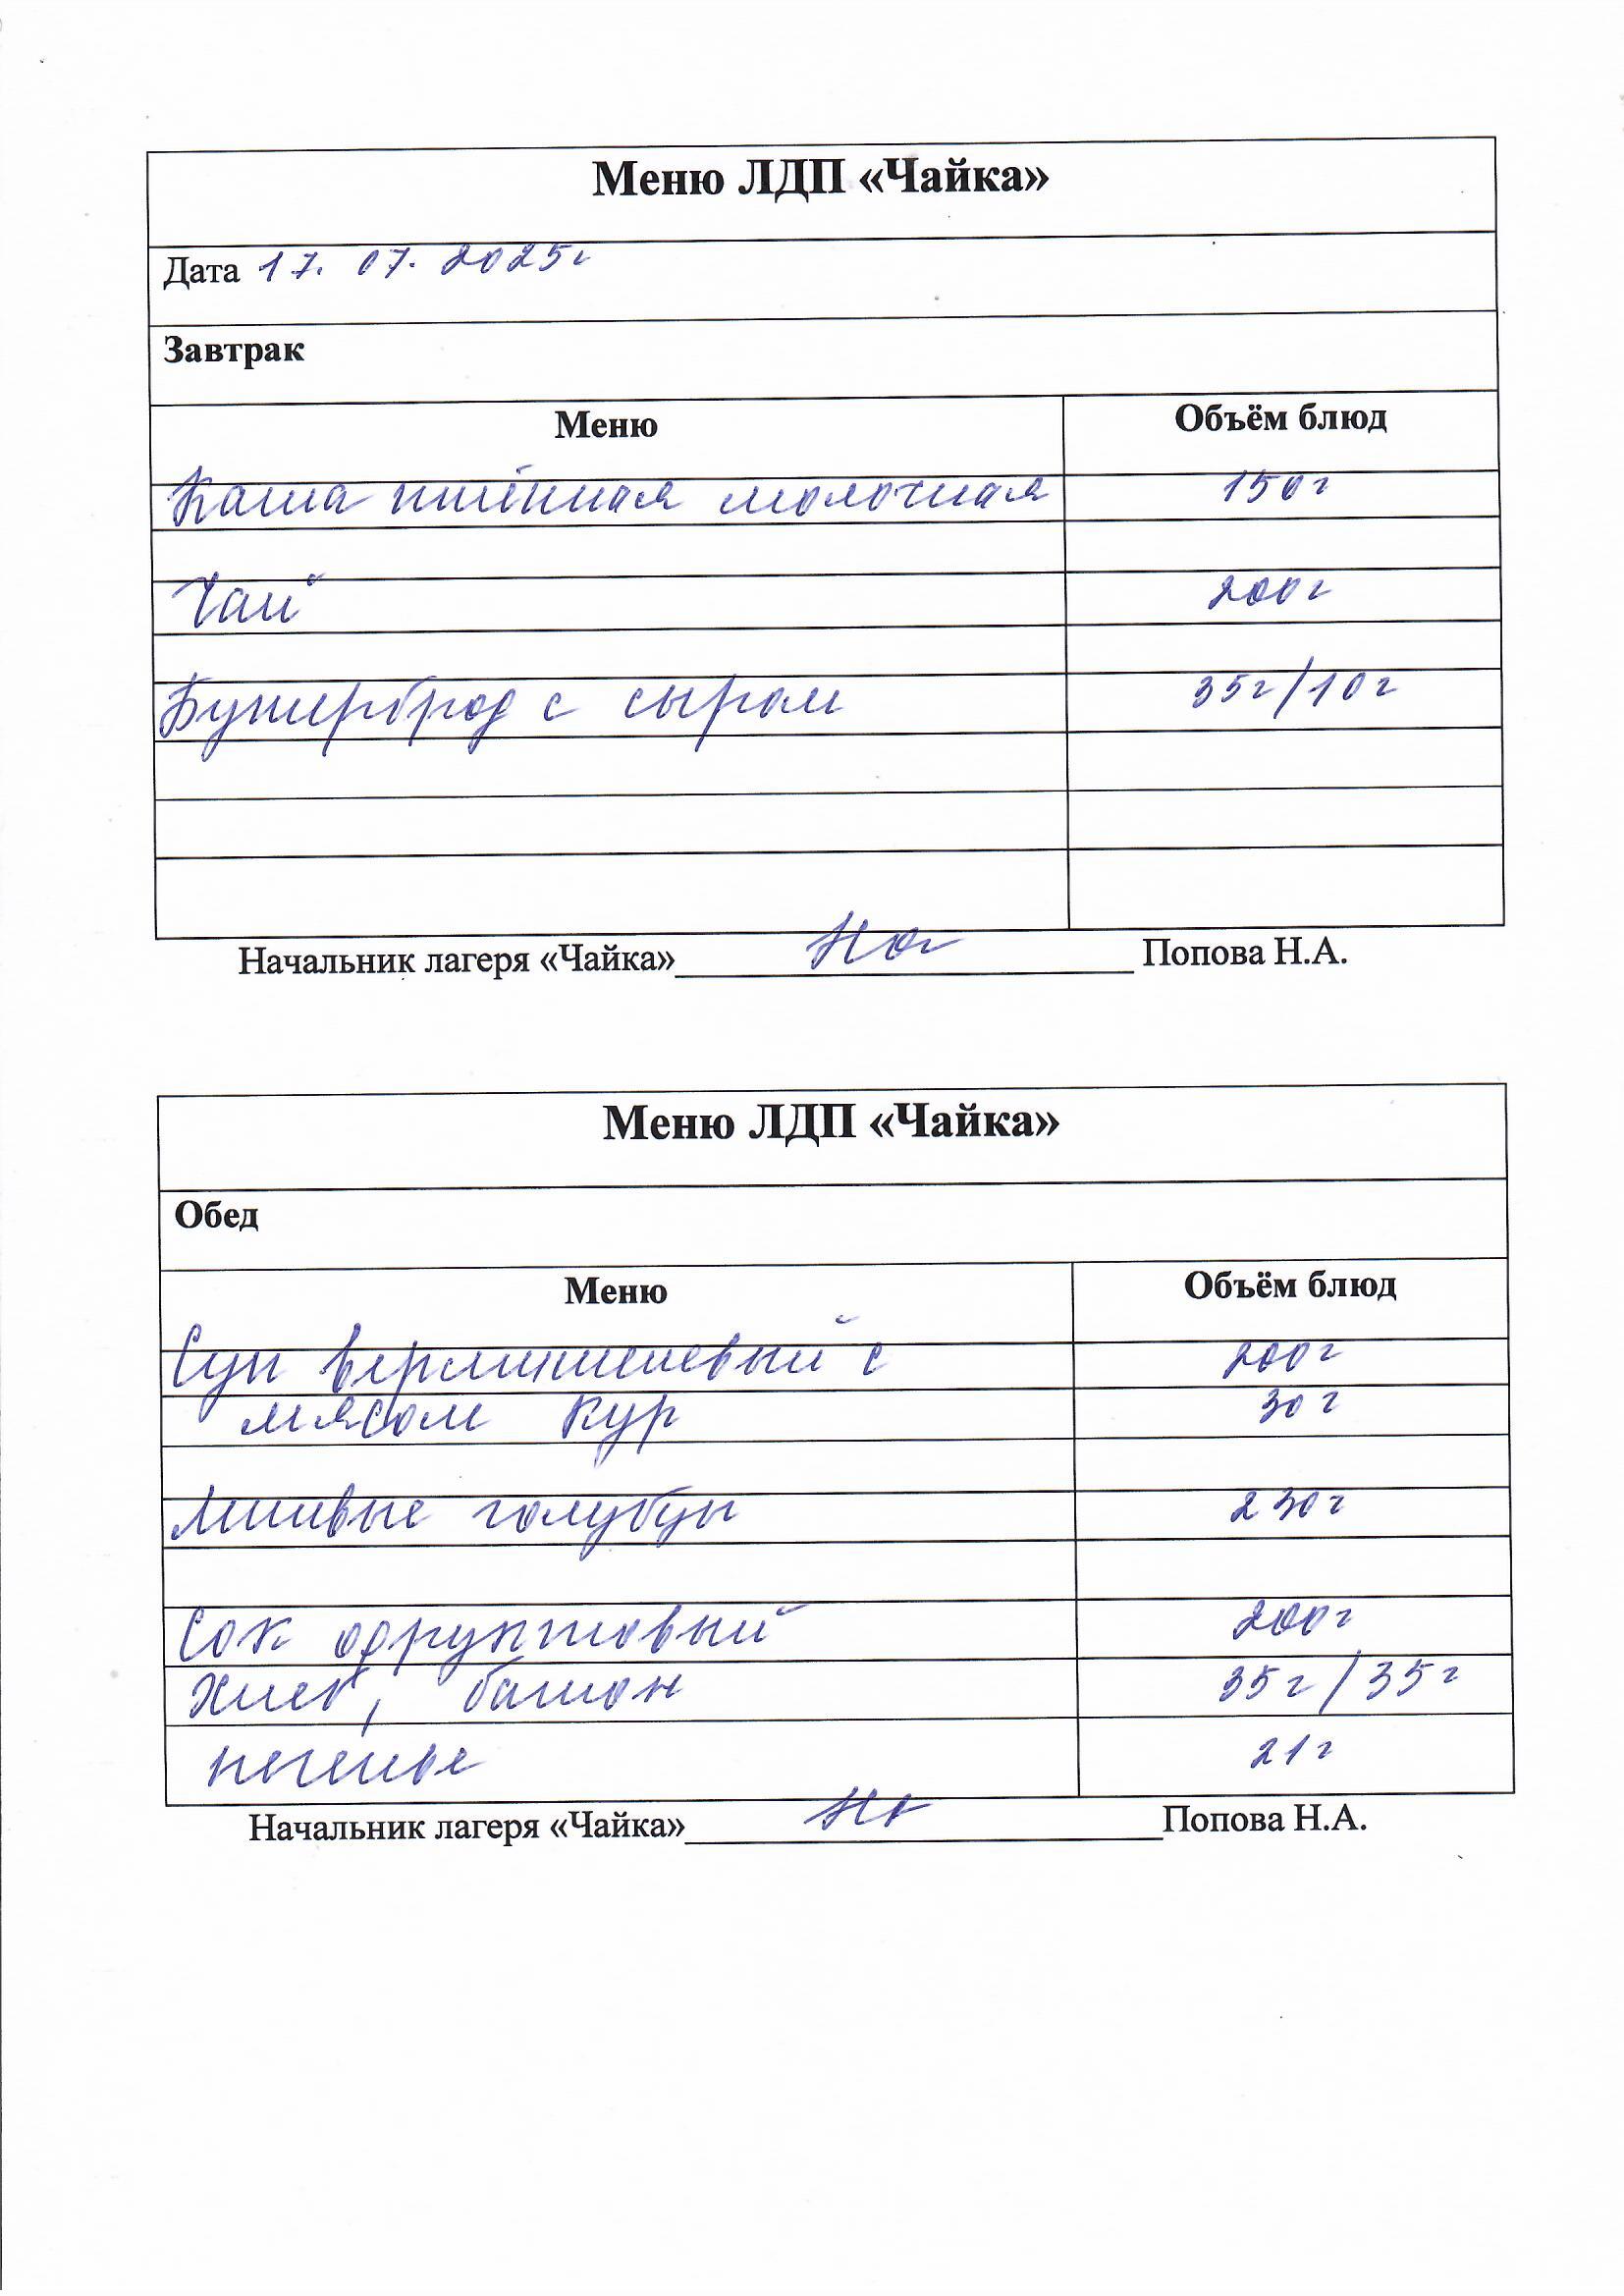 Меню ЛДП «Чайка»
Дата 17.07.2025г
Завтрак
Меню Объём блюд
Каша пшённая молочная 150г
Чай 200г
Бутерброд с сыром 35г/10г
Начальник лагеря «Чайка» Попова Н.А.
Меню ЛДП «Чайка»
Обед
Меню Объём блюд
Суп вермишелевый с 200г
мясом кур 30г
Ленивые голубцы 230г
Сок фруктовый 200г
Хлеб, батон 35г/35г
печенье 21г
Начальник лагеря «Чайка» Попова Н.А.